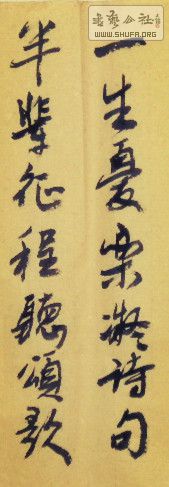 書艺公社
WWW.SHUFA.ORG
一生憂樂凝詩句
半輩征程聽頌歌